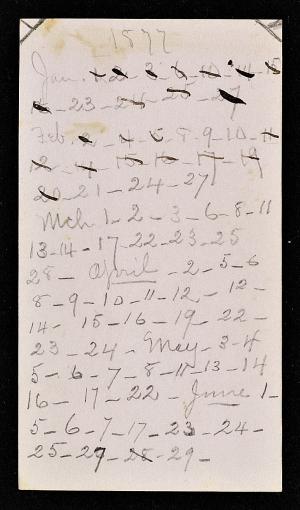 1877
Jan. 1 - 2 - 3 - 6 - 10 - 14 - 15
18 - 23 - 24 - 25 - 27
Feb. 2 - 4 - 5 - 8 - 9 - 10 - 11
12 - 14 - 15 - 16 - 17 - 19
20 - 21 - 24 - 27
Mch 1 - 2 - 3 - 6 - 8 - 11
13 - 14 - 17 - 22 - 23 - 25
28 - April - 2 - 5 - 6
8 - 9 - 10 - 11 - 12 - 12 -
14 - 15 - 16 - 19 - 22 -
23 - 24 - May - 3 - 4
5 - 6 - 7 - 8 - 11 - 13 - 14
16 - 17 - 22 - June 1 -
5 - 6 - 7 - 17 - 23 - 24 -
25 - 27 - 28 - 29 -